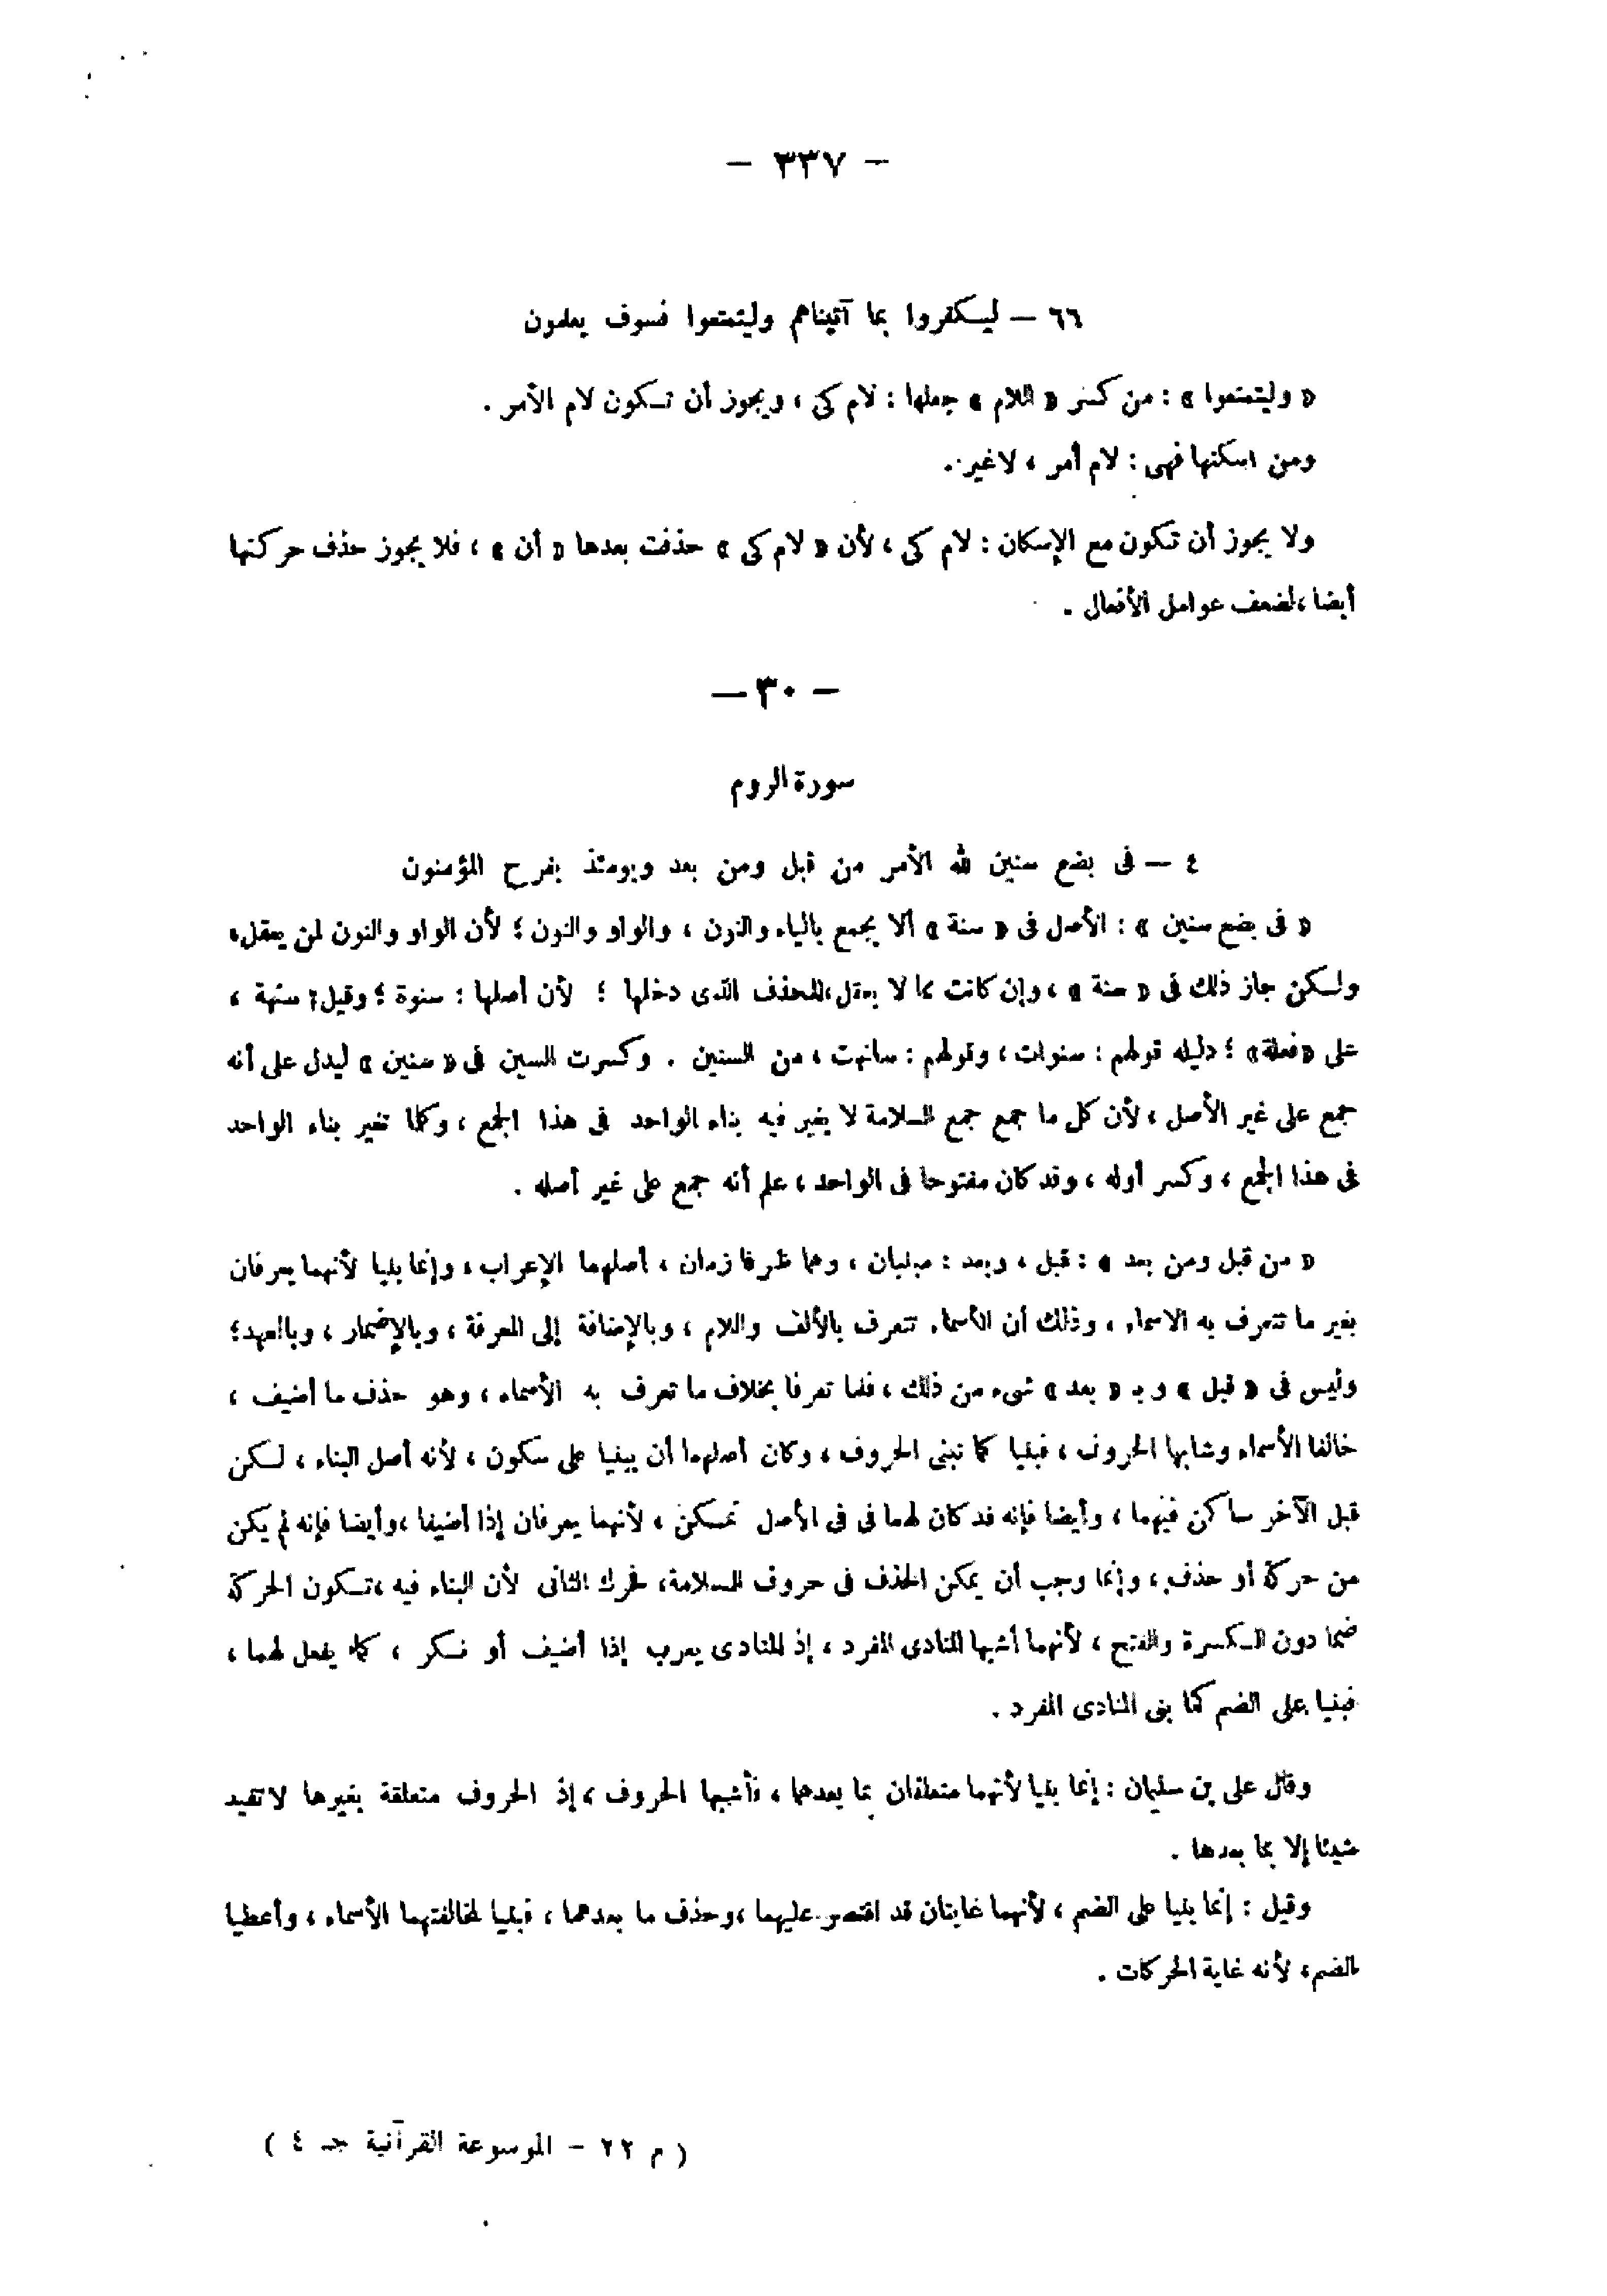 - ٣٣٧ -
٦٦ - ليكفروا بما آتيناهم وليتمتعوا فسوف يعلمون
« وليتمتعوا » : من كسر « اللام » جعلها : لام كى ، ويجوز أن تكون لام الأمر .
ومن اسكنها فهى : لام أمر ، لا غير .
ولا يجوز أن تكون مع الإسكان : لام كى ، لأن « لام كى » حذفت بعدها « أن » ، فلا يجوز حذف حركتها
أيضا ، لضعف عوامل الأفعال .
- ٣٠ -
سورة الروم
٤ - فى بضع سنين لله الأمر من قبل ومن بعد ويومئذ يفرح المؤمنون
« فى بضع سنين » : الأصل فى « سنة » ألا يجمع بالياء والنون ، والواو والنون ؛ لأن الواو والنون لمن يعقل ،
ولكن جاز ذلك فى « سنة » ، وإن كانت مما لا يعقل ، للحذف الذى دخلها ؛ لأن أصلها : سنوة ؛ وقيل : سنهة ،
على « فعلة » ؛ دليله قولهم : سنوات ، وقولهم : سانهت ، من السنين . وكسرت السين فى « سنين » ليدل على أنه
جمع على غير الأصل ، لأن كل ما جمع جمع السلامة لا يغير فيه بناء الواحد فى هذا الجمع ، وكلما تغير بناء الواحد
فى هذا الجمع ، وكسر أوله ، وقد كان مفتوحا فى الواحد ، علم أنه جمع على غير أصله .
« من قبل ومن بعد » : قبل ، وبعد : مبنيان ، وهما ظرفا زمان ، أصلهما الإعراب ، وإنما بنيا لأنهما يعرفان
بغير ما تتعرف به الاسماء ، وذلك أن الأسماء تتعرف بالألف واللام ، وبالإضافة إلى المعرفة ، وبالإضمار ، وبالعهد ؛
وليس فى « قبل » و بـ « بعد » شىء من ذلك ، فلما تعرفا بخلاف ما تعرف به الأسماء ، وهو حذف ما أضيف ،
خالفا الأسماء وشابها الحروف ، فبنيا كما تبنى الحروف ، وكان أصلهما أن يبنيا على سكون ، لأنه أصل البناء ، لكن
قبل الآخر ساكن فيهما ، وأيضا فإنه قد كان لهما فى فى الأصل تمكن ، لأنهما يعرفان إذا أضيفا ، وأيضا فإنه لم يكن
من حركة أو حذف ، وإنما وجب أن يمكن الحذف فى حروف السلامة ، فحرك الثانى لأن البناء فيه ، تكون الحركة
ضما دون الكسرة والفتح ، لأنهما أشبها المنادى المفرد ، إذ المنادى يعرب إذا أضيف أو نكر ، كما يفعل لهما ،
فبنيا على الضم كما بنى المنادى المفرد .
وقال على بن سليمان : إنما بنيا لأنهما متعلقان بما بعدهما ، فأشبها الحروف ، إذ الحروف متعلقة بغيرها لا تفيد
شيئا إلا بما بعدها .
وقيل : إنما بنيا على الضم ، لأنهما غايتان قد اقتصر عليهما ، وحذف ما بعدهما ، فبنيا لمخالفتهما الأسماء ، وأعطيا
الضم ، لأنه غاية الحركات .
( م ٢٢ - الموسوعة القرآنية جـ ٤ )